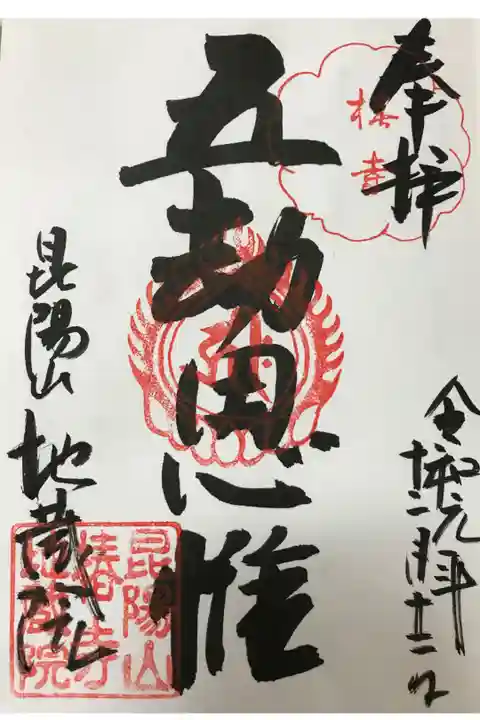 奉拝
椿寺
令和元年
十二月十三日
五劫思惟
昆陽山
地蔵院
昆陽山
椿寺
地蔵院